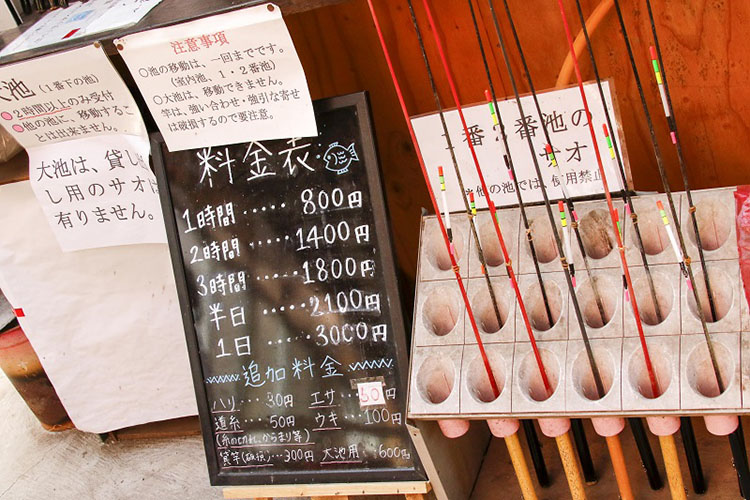 大池 (一番下の池)
◎2時間以上のみ受付
◎他の池に、移動するこ
とは出来ません。
大池は、貸し
し用のサオは
有りません。
注意事項
○池の移動は、一回までです。
(室内池、1・2番池)
○大池は、移動できません。
竿は、強い合わせ・強引な寄せ
は破損するので要注意。
料金表
1時間 ・・・・・ 800円
2時間 ・・・・ 1400円
3時間 ・・・・ 1800円
半日 ・・・・ 2100円
1日 ・・・・ 3000円
追加料金
ハリ ・・・ 30円
エサ ・・・ 50
道糸 ・・・ 50円
ウキ ・・・ 100円
(糸のもつれ、からまり等)
貸竿(破損)・・・300円
大池用 ・・・600円
1番2番池の
サオ
他の池では、使用禁止